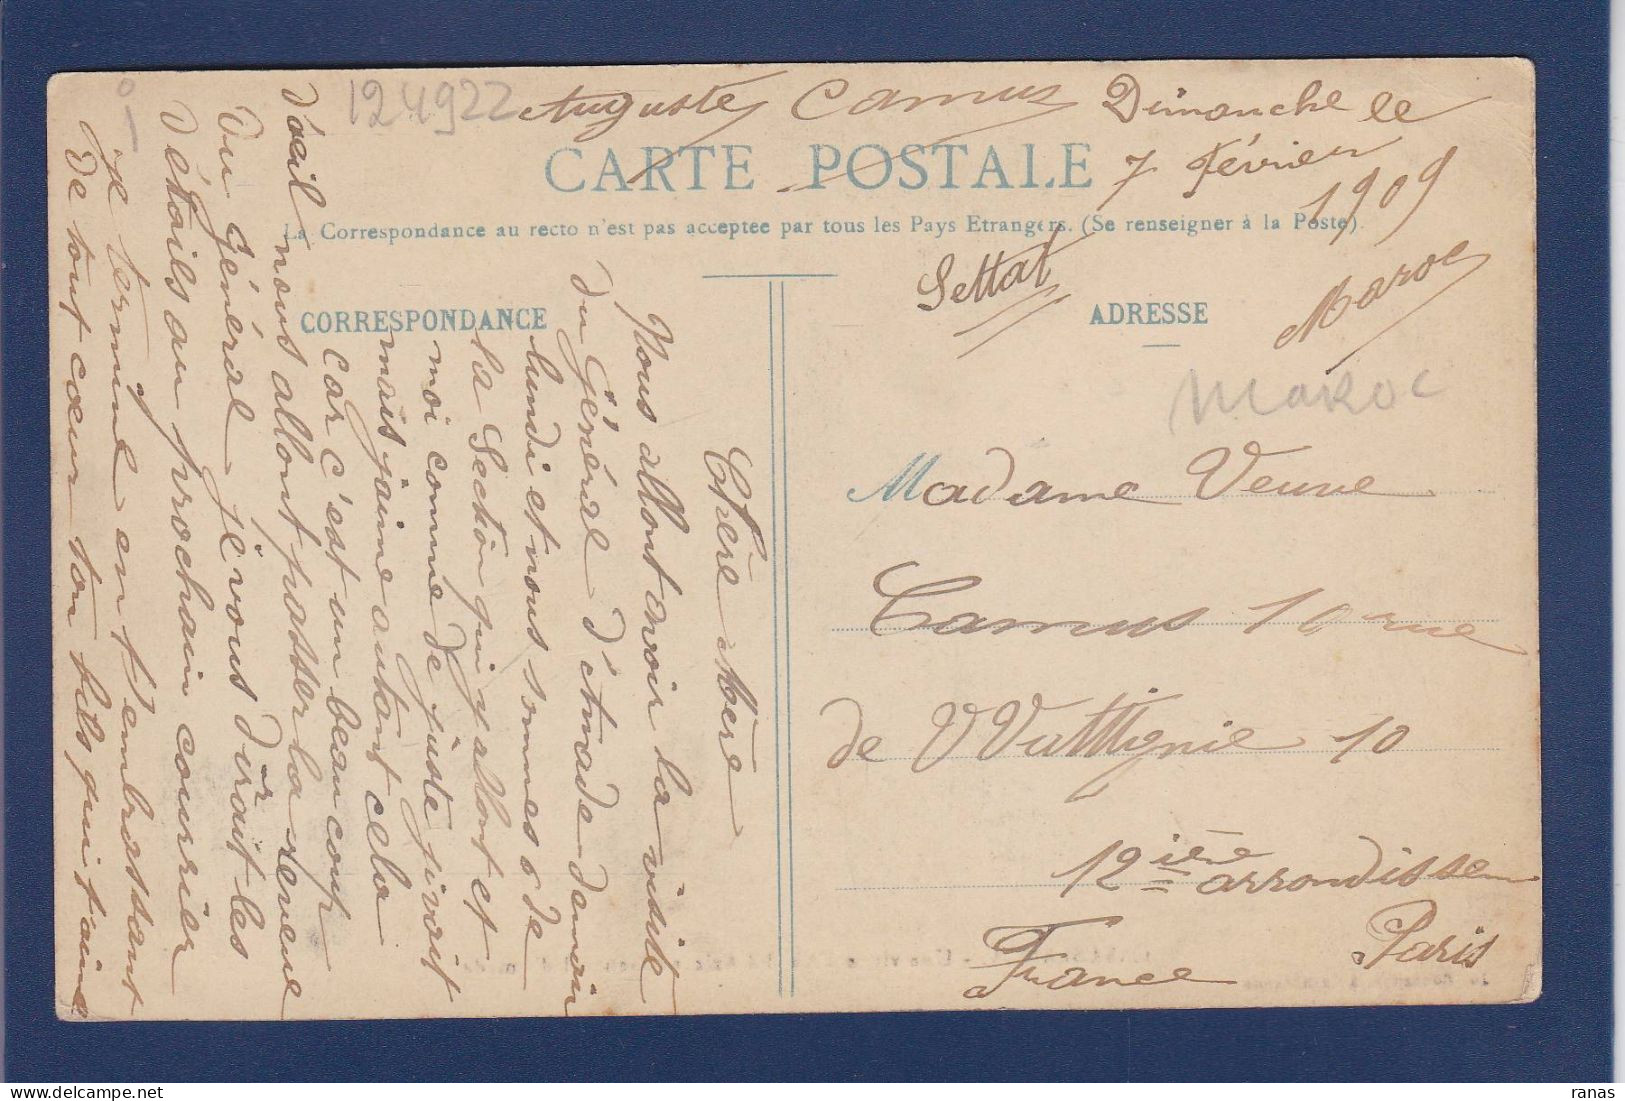 124922
Auguste Camus Dimanche le
7 Février
1909
CARTE POSTALE
La Correspondance au recto n'est pas acceptee par tous les Pays Etrangers. (Se renseigner à la Poste).
Settat
Maroc
CORRESPONDANCE
ADRESSE
MAROC
Chère Mère
Nous allont avoir la visite
du Général d'Amade demain
lundi et nous sommes 6 de
la Section qui y allont et
moi comme de juste j'y vait
mais j'aime autant cela
car c'est un beau coup
d'oeil nous allont passer la revue
du Général je vous dirait les
détails au prochain courrier
je termine en t'embrassant
de tout cœur ton fils qui t'aime
Madame Veuve
Camus 10 rue
de Wattignie 10
12ième arrondissem
Paris
France
ranas